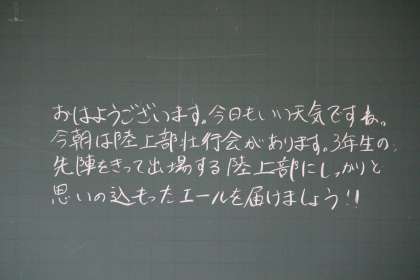 おはようございます。今日もいい天気ですね。
今朝は陸上部壮行会があります。3年生の、
先陣をきって出場する陸上部にしっかりと
思いの込もったエールを届けましょう!!